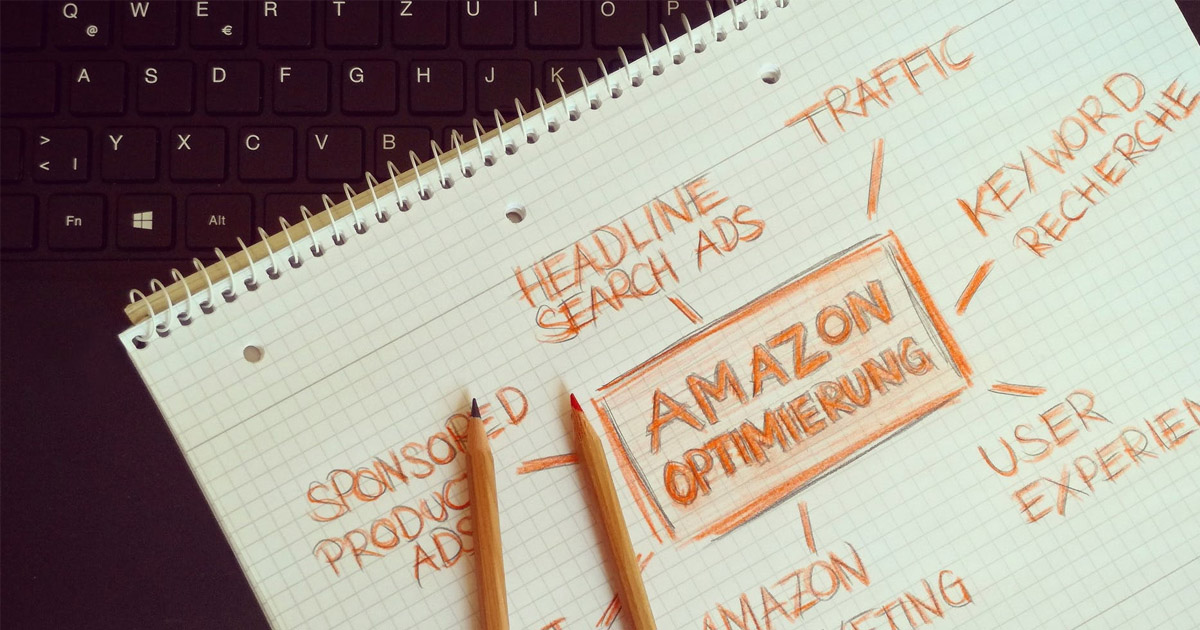 Q W E R T Z U I O P
@ €
A S D F G H J K
> Y X C V B
< |
Fn Alt
TRAFFIC
KEYWORD
RECHERCHE
HEADLINE
SEARCH ADS
AMAZON
OPTIMIERUNG
SPONSORED
PRODUCT
ADS
USER
AMAZON